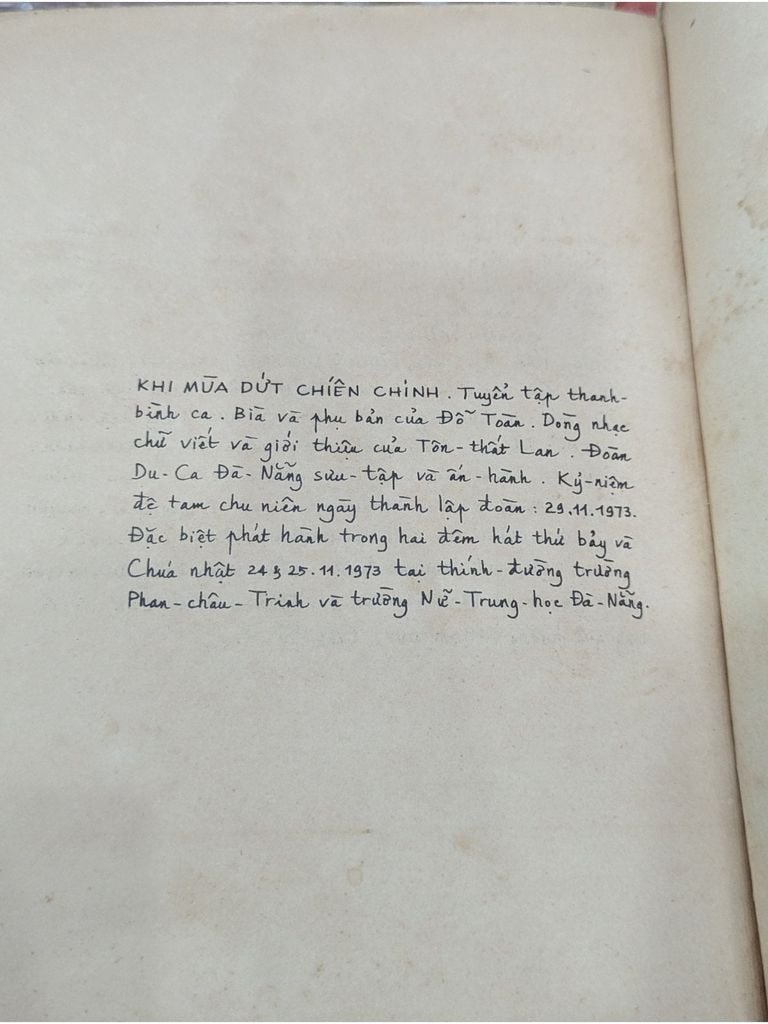 KHI MÙA DỨT CHIẾN CHINH. Tuyển tập thanh-
bình ca. Bìa và phụ bản của Đỗ Toàn. Dòng nhạc
chữ viết và giới thiệu của Tôn-thất Lan. Đoàn
Du-Ca Đà-Nẵng sưu-tập và ấn-hành. Kỷ-niệm
đệ tam chu niên ngày thành lập đoàn: 29.11.1973.
Đặc biệt phát hành trong hai đêm hát thứ bảy và
Chúa nhật 24 & 25.11.1973 tại thính-đường trường
Phan-châu-Trinh và trường Nữ-Trung-học Đà-Nẵng.